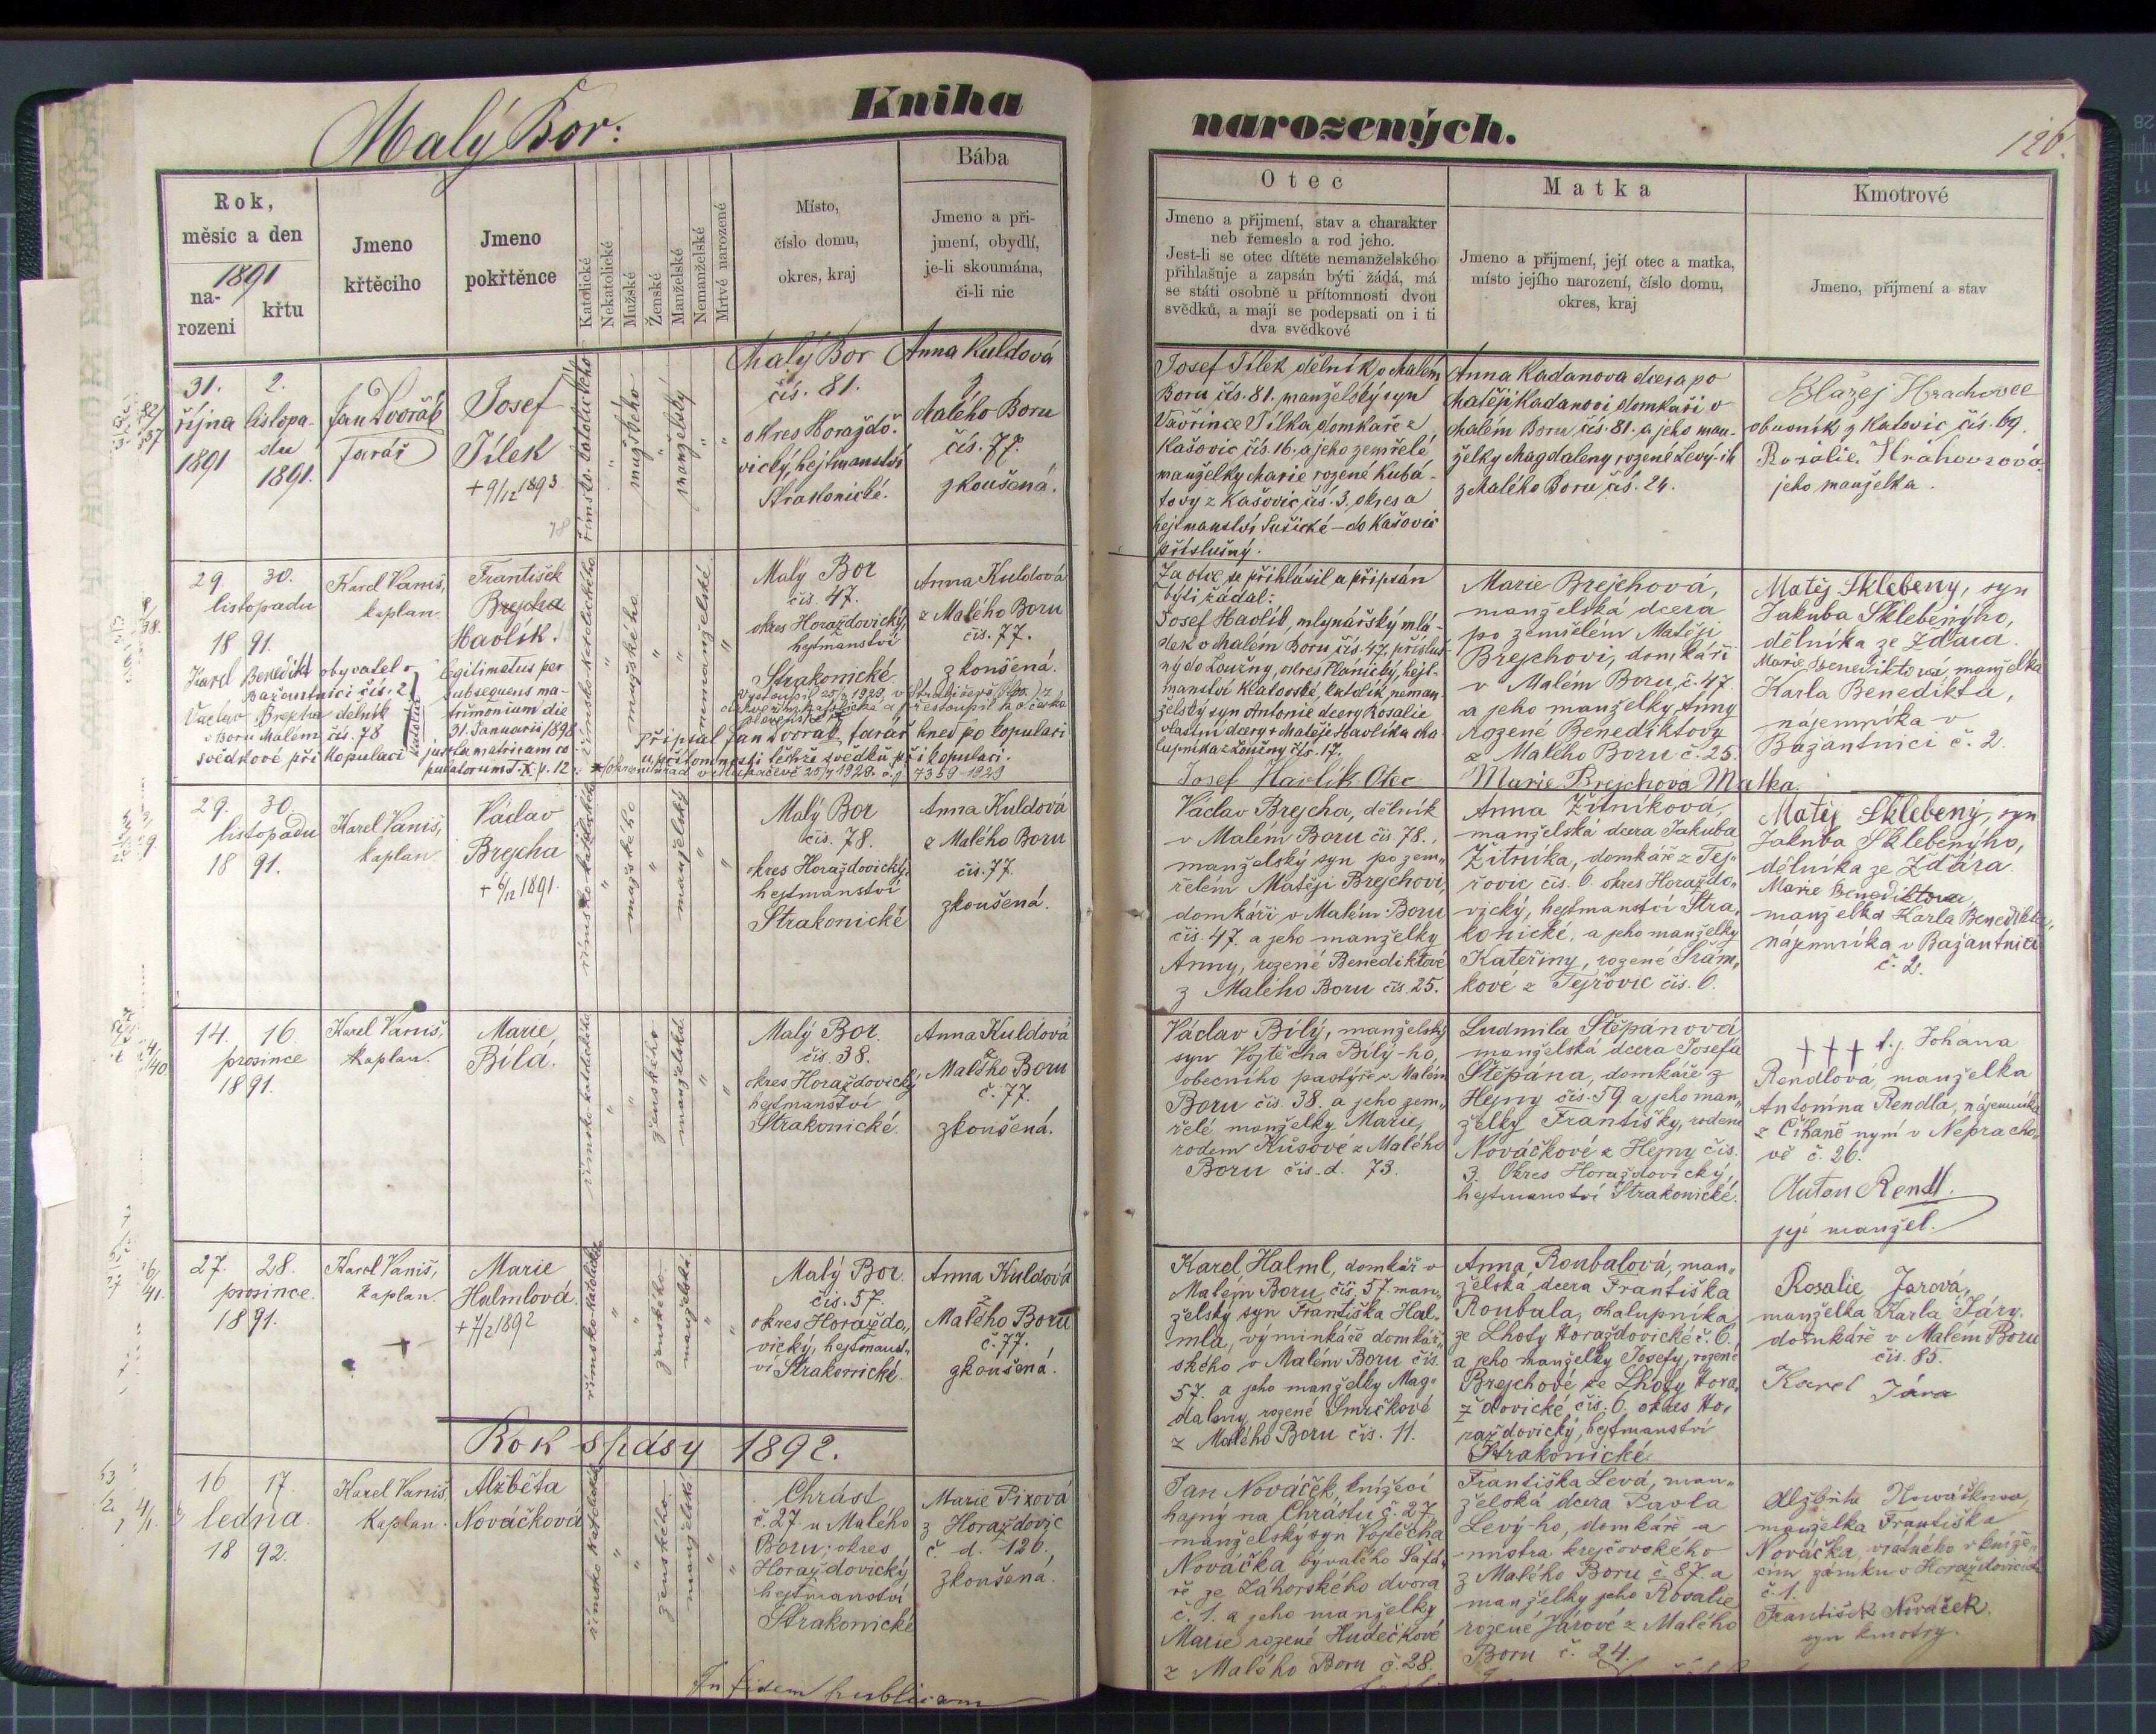 Malý Bor:
Kniha
narozených.
126.
Rok,
měsíc a den
1891
na-
rození
křtu
Jmeno
křtěcího
Jmeno
pokřtěnce
Katolické
Nekatolické
Mužské
Ženské
Manželské
Nemanželské
Mrtvé narozené
Místo,
číslo domu,
okres, kraj
Bába
Jmeno a při-
jmení, obydlí,
je-li skoumána,
či-li nic
Otec
Jmeno a přijmení, stav a charakter
neb řemeslo a rod jeho.
Jest-li se otec dítěte nemanželského
přihlašuje a zapsán býti žádá, má
se státi osobně u přítomnosti dvou
svědků, a mají se podepsati on i ti
dva svědkové
Matka
Jmeno a přijmení, její otec a matka,
místo jejího narození, číslo domu,
okres, kraj
Kmotrové
Jmeno, přijmení a stav
31. 2.
října listopa-
du
1891 1891.
Jan Dvořák
farář
Josef
Tílek
+ 9/12 1893
římsko-katolického
mužského
manželský
Malý Bor
čís. 81.
okres Horaždo-
vický, hejtmanství
Strakonické.
Anna Kuldová
z
Malého Boru
čís. 77.
zkoušená.
Josef Tílek dělník v Malém
Boru čís. 81. manželský syn
Vavřince Tílka, domkaře z
Kašovic čís. 16. a jeho zemřelé
manželky Marie rozené Kubá-
tovy z Kašovic čís. 3, okres a
hejtmanství Sušické – do Kašovic
příslušný.
Anna Kadanova dcera po
Matěji Kadanovi domkaři v
Malém Boru čís. 81. a jeho man-
želky Magdaleny rozené Levy-ch
z Malého Boru čís. 24.
Blažej Hrachovec
obuvník z Katovic čís. 69.
Rozalie Hráhovcová
jeho manželka.
29. 30.
listopadu
18 91.
Karel Vaniš,
kaplan
František
Brejcha
Havlík.
legitimatus per
subsequens ma-
trimonium die
31. Januarii 1898
juxta matricam co-
pulatorum T. X. p. 12.
Karel Benedikt obyvatel v
Bažantnici čís. 2
Václav Brejcha dělník
v Boru Malém čís. 78
svědkové při kopulaci
římsko-katolického
mužského
nemanželské
Malý Bor
čís. 47.
okres Horažďovický
hejtmanství
Strakonické.
Anna Kuldová
z Malého Boru
čís. 77.
zkoušená.
Připsal Jan Dvořák, farář hned po kopulaci
u přítomnosti těchže svědků při kopulaci.
Za otce se přihlásil a připsán
býti žádal:
Josef Havlík, mlynářský mlá-
dek v Malém Boru čís. 47. přísluš-
ný do Loučny, okres Plánický, hejt-
manství Klatovské, katolík neman-
želský syn Antonie dcery Rosalie
vlastní dcery + Matěje Havlíka cha-
lupníka z Loučny čís. 17.
Josef Havlík Otec
Marie Brejchová,
manželská dcera
po zemřelém Matěji
Brejchovi, domkáři
v Malém Boru, č. 47
a jeho manželky Anny
rozené Benediktovy
z Malého Boru č. 25.
Marie Brejchova Matka.
Matěj Sklebeny, syn
Jakuba Sklebenýho,
dělníka ze Zdára.
Marie Benediktova, manželka
Karla Benedikta,
nájemníka v
Bažantnici č. 2.
29. 30.
listopadu
18 91.
Karel Vaniš,
kaplan
Václav
Brejcha
+ 6/12 1891.
římsko-katolického
mužského
manželský
Malý Bor
čís. 78.
okres Horažďovický,
hejtmanství
Strakonické
Anna Kuldová
z Malého Boru
čís. 77.
zkoušená.
Václav Brejcha, dělník
v Malém Boru čís. 78.,
manželský syn po zem-
řelém Matěji Brejchovi,
domkáři v Malém Boru
čís. 47. a jeho manželky
Anny, rozené Benediktové
z Malého Boru čís. 25.
Anna Žitníková,
manželská dcera Jakuba
Žitníka, domkáře z Tej-
řovic čís. 6. okres Horažďo-
vický, hejtmanství Stra-
konické, a jeho manželky
Kateřiny, rozené Šrám-
kové z Tejřovic čís. 6.
Matěj Sklebený, syn
Jakuba Sklebenýho,
dělníka ze Zdára
Marie Benediktova,
manželka Karla Benedikta,
nájemníka v Bažantnici
č. 2.
14. 16.
prosince
1891.
Karel Vaniš,
kaplan.
Marie
Bílá.
římsko-katolického
ženského
manželská
Malý Bor.
čís. 38.
okres Horažďovický
hejtmanství
Strakonické.
Anna Kuldová
z
Malého Boru
č. 77.
zkoušená.
Václav Bílý, manželský
syn Vojtěcha Bílý-ho,
obecního pastýře v Malém
Boru čís. 38. a jeho zem-
řelé manželky Marie,
rodem Kušové z Malého
Boru čís. d. 73.
Ludmila Štěpánová
manželská dcera Josefa
Štěpána, domkáře z
Hejny čís. 59 a jeho man-
želky Františky, rodem
Nováčkové z Hejny čís.
3. Okres Horažďovický,
hejtmanství Strakonické.
+++ t.j. Johana
Rendlová, manželka
Antonína Rendla, nájemníka
z Číhaně nyní v Nepracho-
vě č. 26.
Anton Rendl.
její manžel.
27. 28.
prosince.
1891.
Karel Vaniš,
kaplan.
Marie
Halmlová.
+ 7/2 1892
římsko-katolického
ženského
manželská.
Malý Bor.
čís. 57.
okres Horaždo-
vický, hejtmanst-
ví Strakonické.
Anna Kuldová
z
Malého Boru
č. 77.
zkoušená.
Karel Halml, domkář v
Malém Boru čís. 57. man-
želský syn Františka Hal-
mla, výminkáře domkář-
ského v Malém Boru čís.
57. a jeho manželky Mag-
daleny rozené Smrčkové
z Malého Boru čís. 11.
Anna Roubalová, man-
želská dcera Františka
Roubala, chalupníka
ze Lhoty Horaždovické č. 6.
a jeho manželky Josefy, rozené
Brejchové ze Lhoty Hora-
ždovické čís. 6. okres Ho-
ražďovický, hejtmanství
Strakonické.
Rosalie Jarová,
manželka Karla Járy,
domkáře v Malém Boru
čís. 85.
Karel Jára
Rok spásy 1892.
16 17.
ledna
18 92.
Karel Vaniš,
Kaplan.
Alžběta
Nováčková
římsko-katolického
ženského
manželská
Chrást
č. 27 u Malého
Boru: okres
Horažďovický
hejtmanství
Strakonické
Marie Pixová
z Horažďovic
č. d. 126,
zkoušená.
Jan Nováček, knížecí
hajný na Chrástu č. 27,
manželský syn Vojtěcha
Nováčka, bývalého šafá-
ře ze Záhorského dvora
č. 1. a jeho manželky
Marie rozené Hudečkové
z Malého Boru č. 28.
Františka Levá, man-
želská dcera Pavla
Levý-ho, domkáře a
mistra krejčovského
z Malého Boru č. 87. a
manželky jeho Rosalie
rozené Járové z Malého
Boru č. 24.
Alžběta Nováčkova,
manželka Františka
Nováčka, vrátného v kníže-
cím zámku v Horažďovicích
č. 1.
František Nováček.
syn kmotry.
In fidem publicam